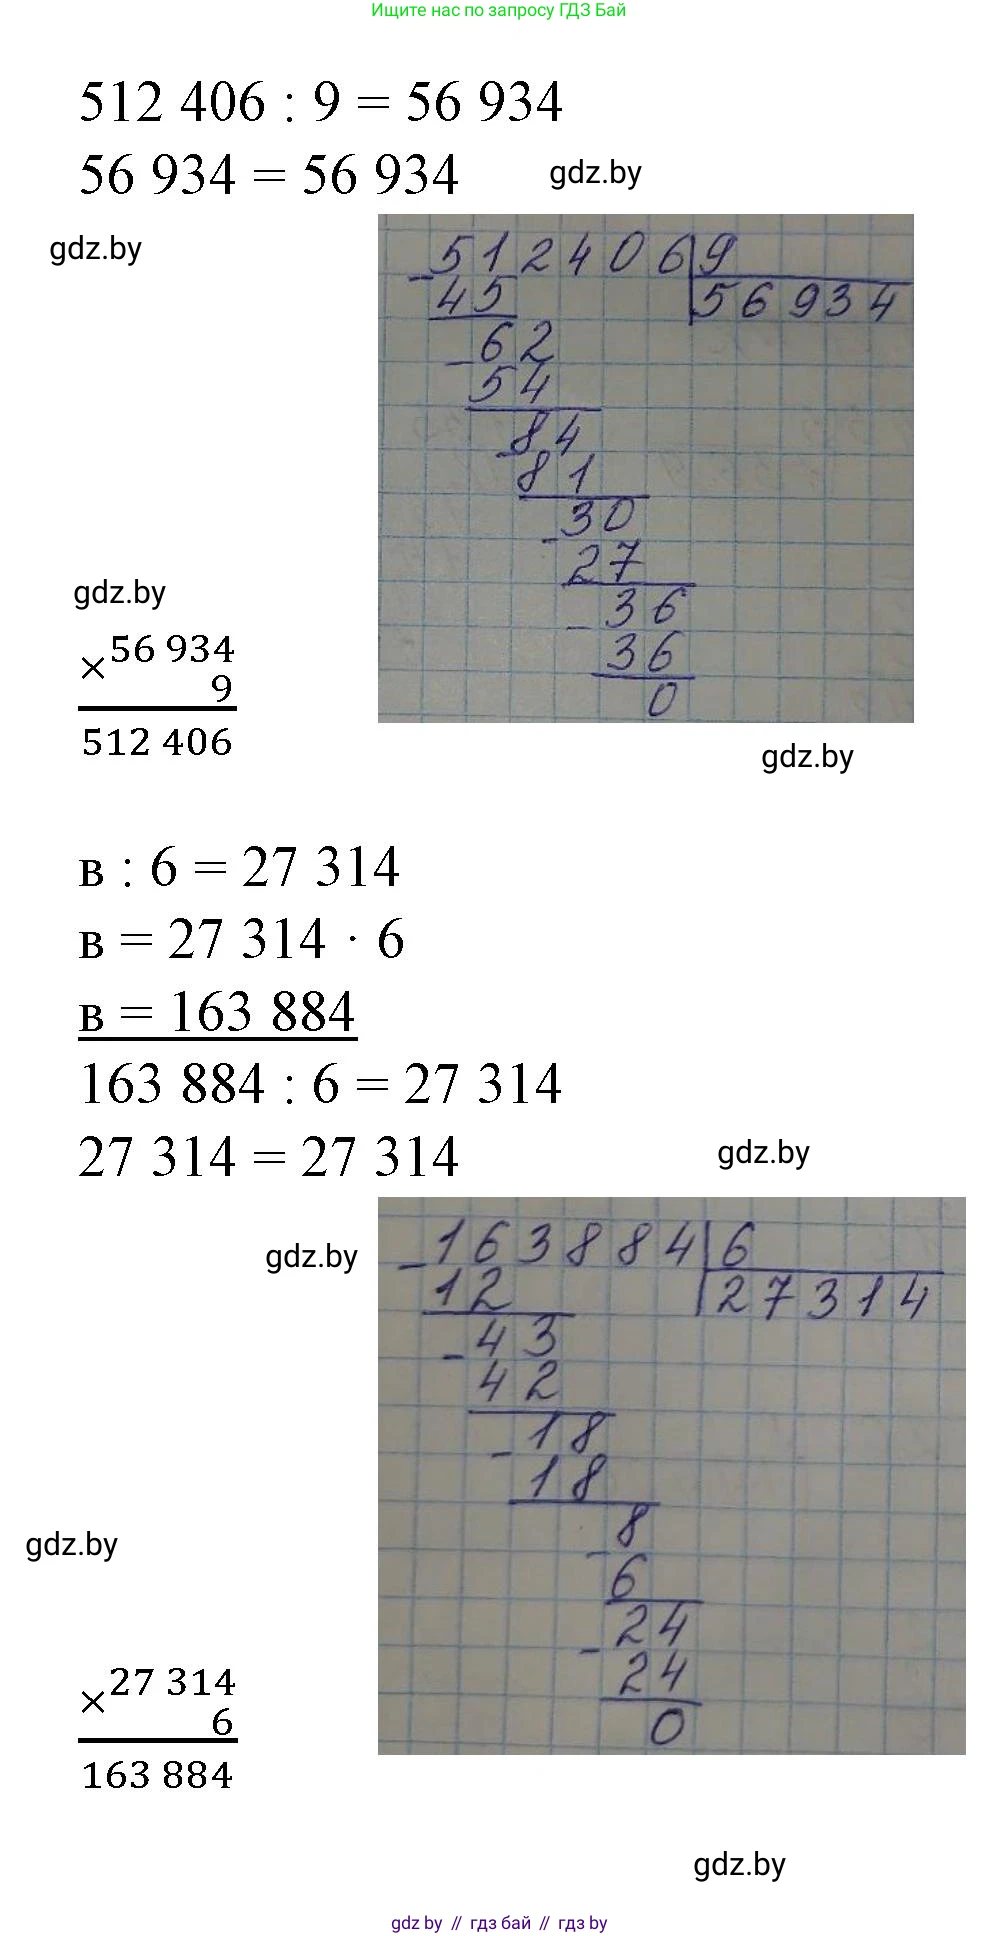 Ищите нас по запросу ГДЗ Бай
512 406 : 9 = 56 934
56 934 = 56 934
gdz.by
gdz.by
- 512406 9
45 56934
- 62
54
- 84
81
- 30
27
- 36
36
0
gdz.by
× 56 934
9
512 406
gdz.by
в : 6 = 27 314
в = 27 314 · 6
в = 163 884
163 884 : 6 = 27 314
27 314 = 27 314
gdz.by
gdz.by
- 163884 6
12 27314
- 43
42
- 18
18
- 8
6
- 24
24
0
gdz.by
× 27 314
6
163 884
gdz.by
gdz by // гдз бай // гдз by